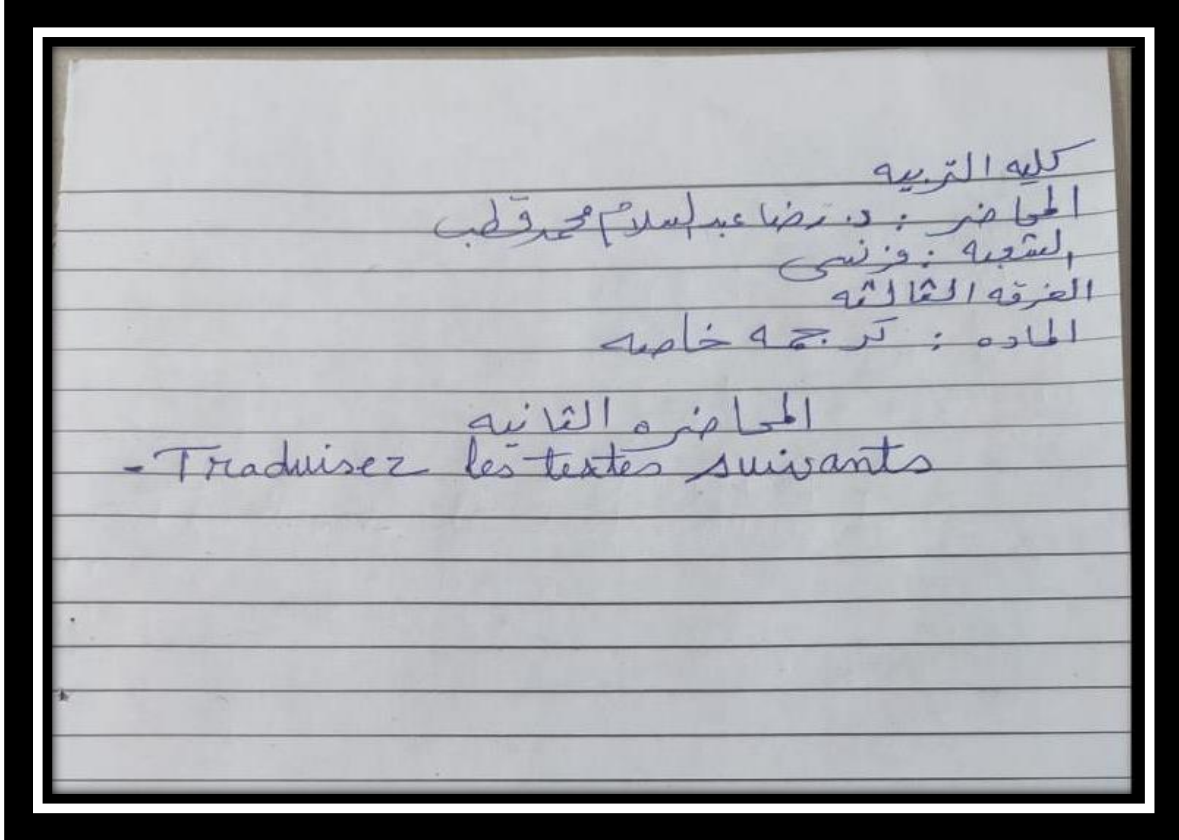 كليه التربيه
المحاضر : د. رضا عبد السلام محمد قطب
الشعبه : فرنسى
الفرقه الثالثه
الماده : ترجمه خاصه
المحاضره الثانيه
- Traduisez les textes suivants